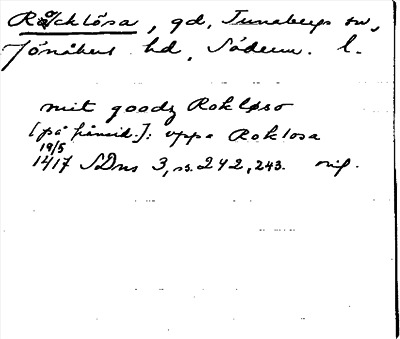 Råcklösa, gd, Tunabergs sn,
Jönåkers hd, Söderm. l.
mit goodz Rokløso
[på frånsid.]: uppa Roklosa
19/5
1417 SDns 3, ss. 242, 243. orig.